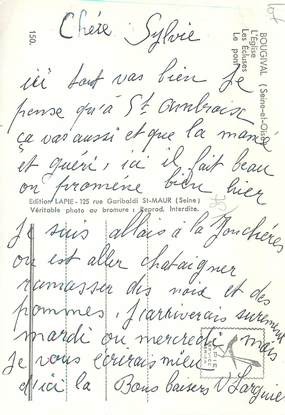 Chére Sylvie
ici tout vas bien Je
pense qu'à St Ambroise
ça vas aussi et que la mamé
et guéri, ici il fait beau
on promène bien hier
Je suis allais à la Jonchères
ou est aller chataigner
ramasser des noix et des
pommes, J'arriverais surement
mardi ou mercredi mais
Je vous écrirais mieu
d'ici la Bons baisers
150.
BOUGIVAL (Seine-et-Oise)
L'Église
Les Écluses
Le pont
Edition LAPIE - 125 rue Garibaldi St-MAUR (Seine)
Véritable photo au bromure : Reprod. Interdite.
LAPIE